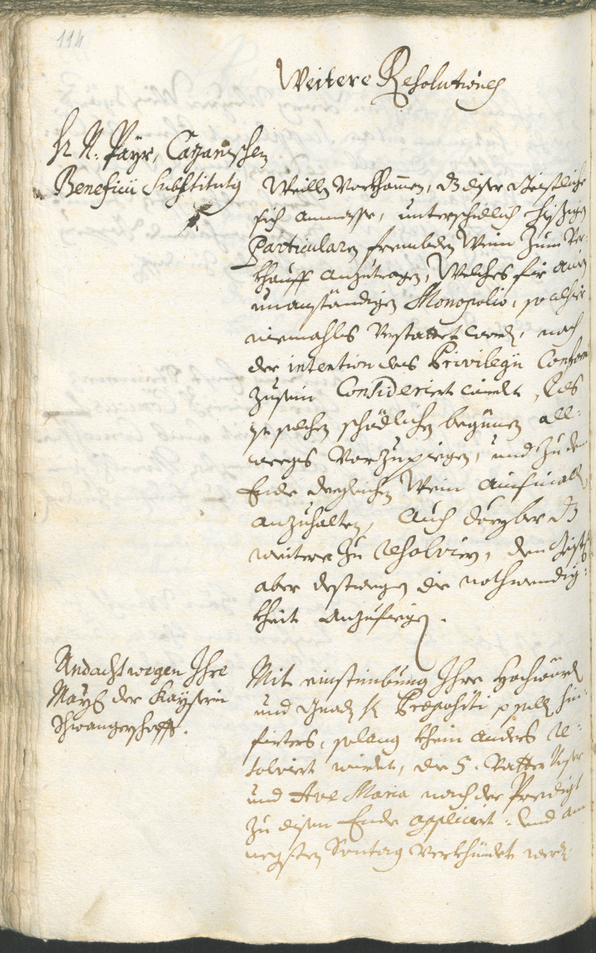 114
Weitere Resolutiones
Hr N: Payr, Cazanischen
Beneficii Substitutg
Weill Vorkhommen, dz diser Geistliche
sich anmasse, unterschidlich
Particularn frembden Wein zum Ver
khauff anzutragen, Welches für ain
unanständiges Monopolio, so alhir
niemahls Verstattet word, nach
der intention des Privilegii
zusein Consideriert wirdt, Als
ist solchen schädlichen beginnen all:
wegs Vorzupiegen, und zu dem
Ende dergleichen Wein
anzuhalten, Auch drüber dz
weitere zu resolviern, dem
aber destwegen die nothwendig:
kheit anzufiegen.
Andacht wegen Ihro
Mayt der Kayserin
Schwangerschafft.
Mit einstimbung Ihro Hochwürd
und Gnad H Praepositi solle hin:
firters, solang khein anders re:
solviert wirdt, die 5. Vatter Unser
und Ave Maria nach der Predigt
zu disem Ende appliciert: Und am
negsten Sontag Verkhündet werd